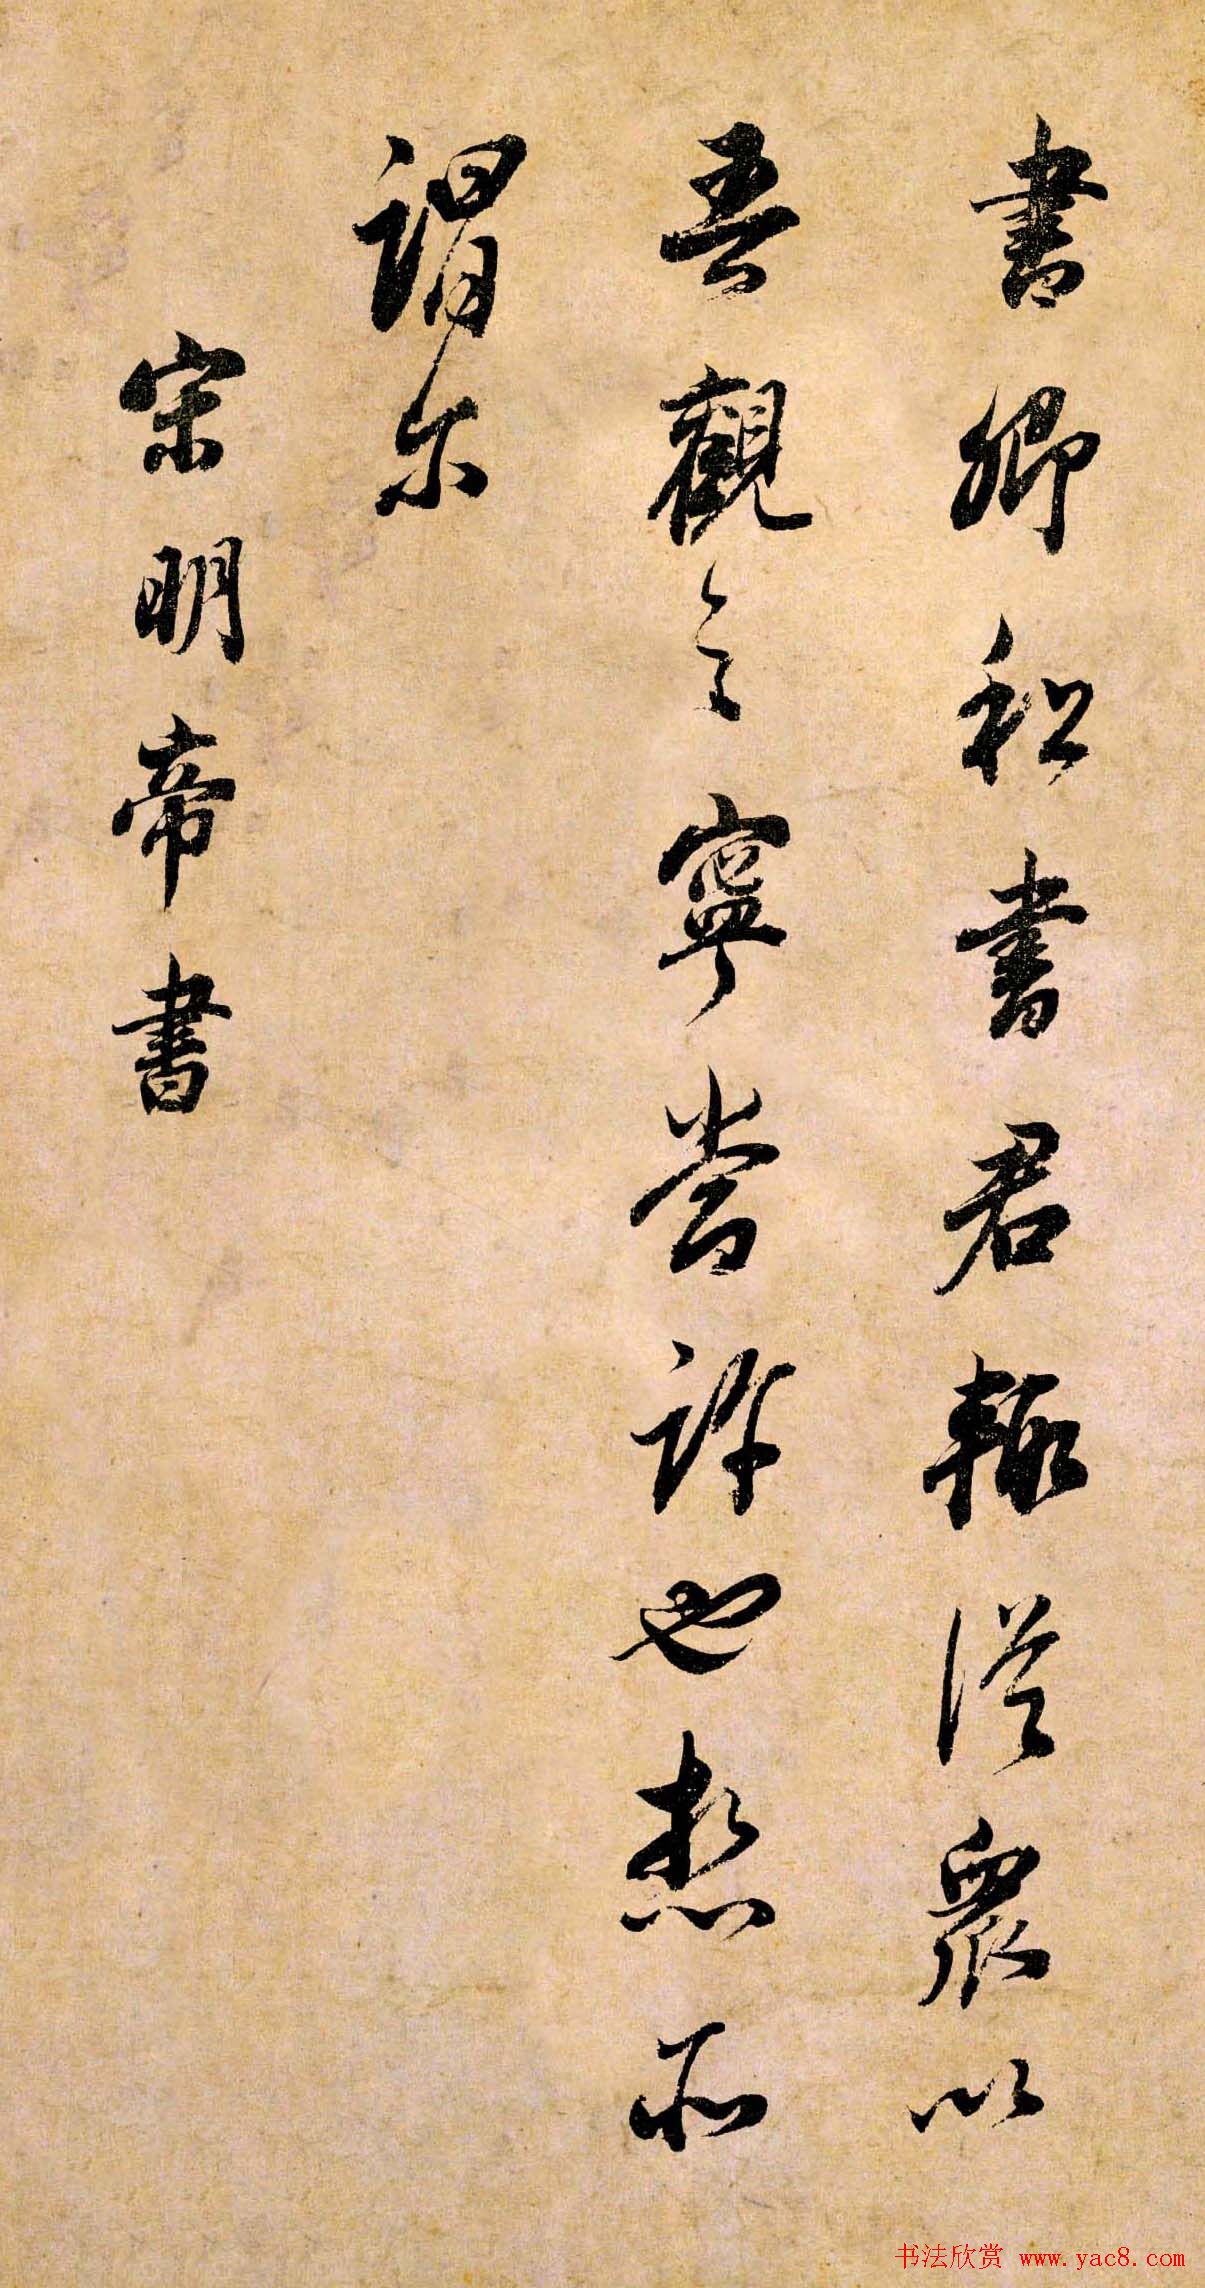 書卿和書君輒從眾以
吾觀寧嘗許也想所
謂尔
宋明帝書
书法欣赏 www.yac8.com